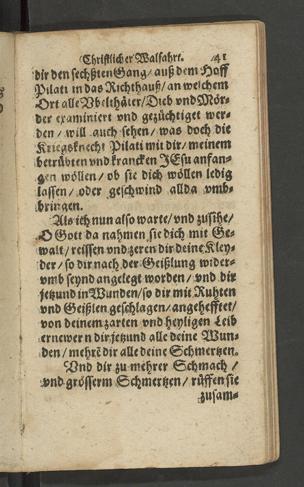 Christlicher Walfahrt. 41
dir den sechßten Gang / auß dem Hoff
Pilati in das Richthauß / an welchem
Ort alle Vbelthäter / Dieb vnd Mör-
der examiniert vnd gezüchtiget wer-
den / will auch sehen / was doch die
Kriegsknecht Pilati mit dir / meinem
betrübten vnd krancken JEsu anfan-
gen wöllen / ob sie dich wöllen ledig
lassen / oder geschwind allda vmb-
bringen.
Als ich nun also warte / vnd zusihe /
O Gott da nahmen sie dich mit Ge-
walt / reissen vnd zeren dir deine Kley-
der / so dir nach der Geißlung wider-
vmb seynd angelegt worden / vnd dir
jetzund in Wunden / so dir mit Ruhten
vnd Geißlen geschlagen / angehefftet /
von deinem zarten vnd heyligen Leib
ernewern dir jetzund alle deine Wun-
den / mehrē dir alle deine Schmertzen.
Vnd dir zu mehrer Schmach /
vnd grösserm Schmertzen / rüffen sie
zusam-